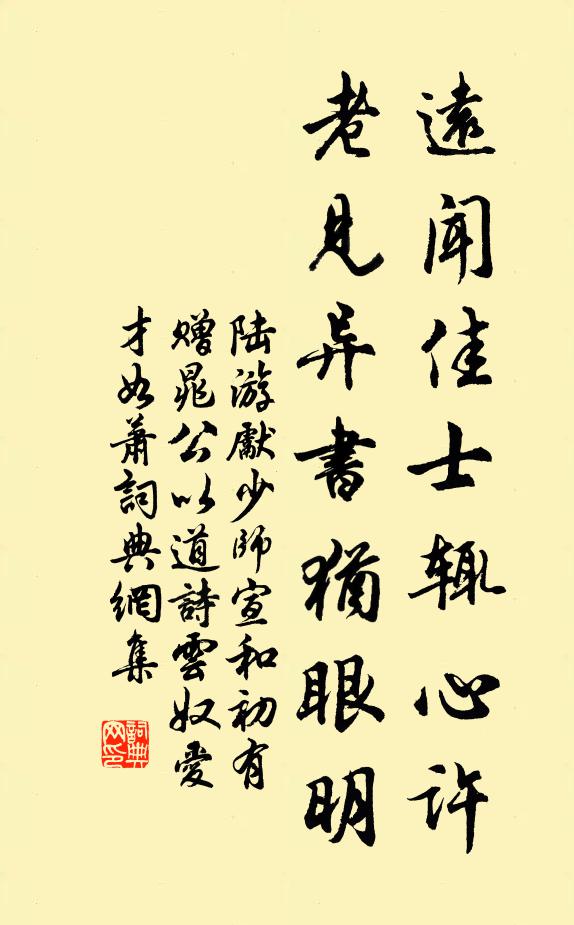 遠聞佳士辄心許
老見异書猶眼明
陆游獻少師宣和初有
贈晁公以道詩雲奴愛
才如蕭詞典網集
詞典
网印